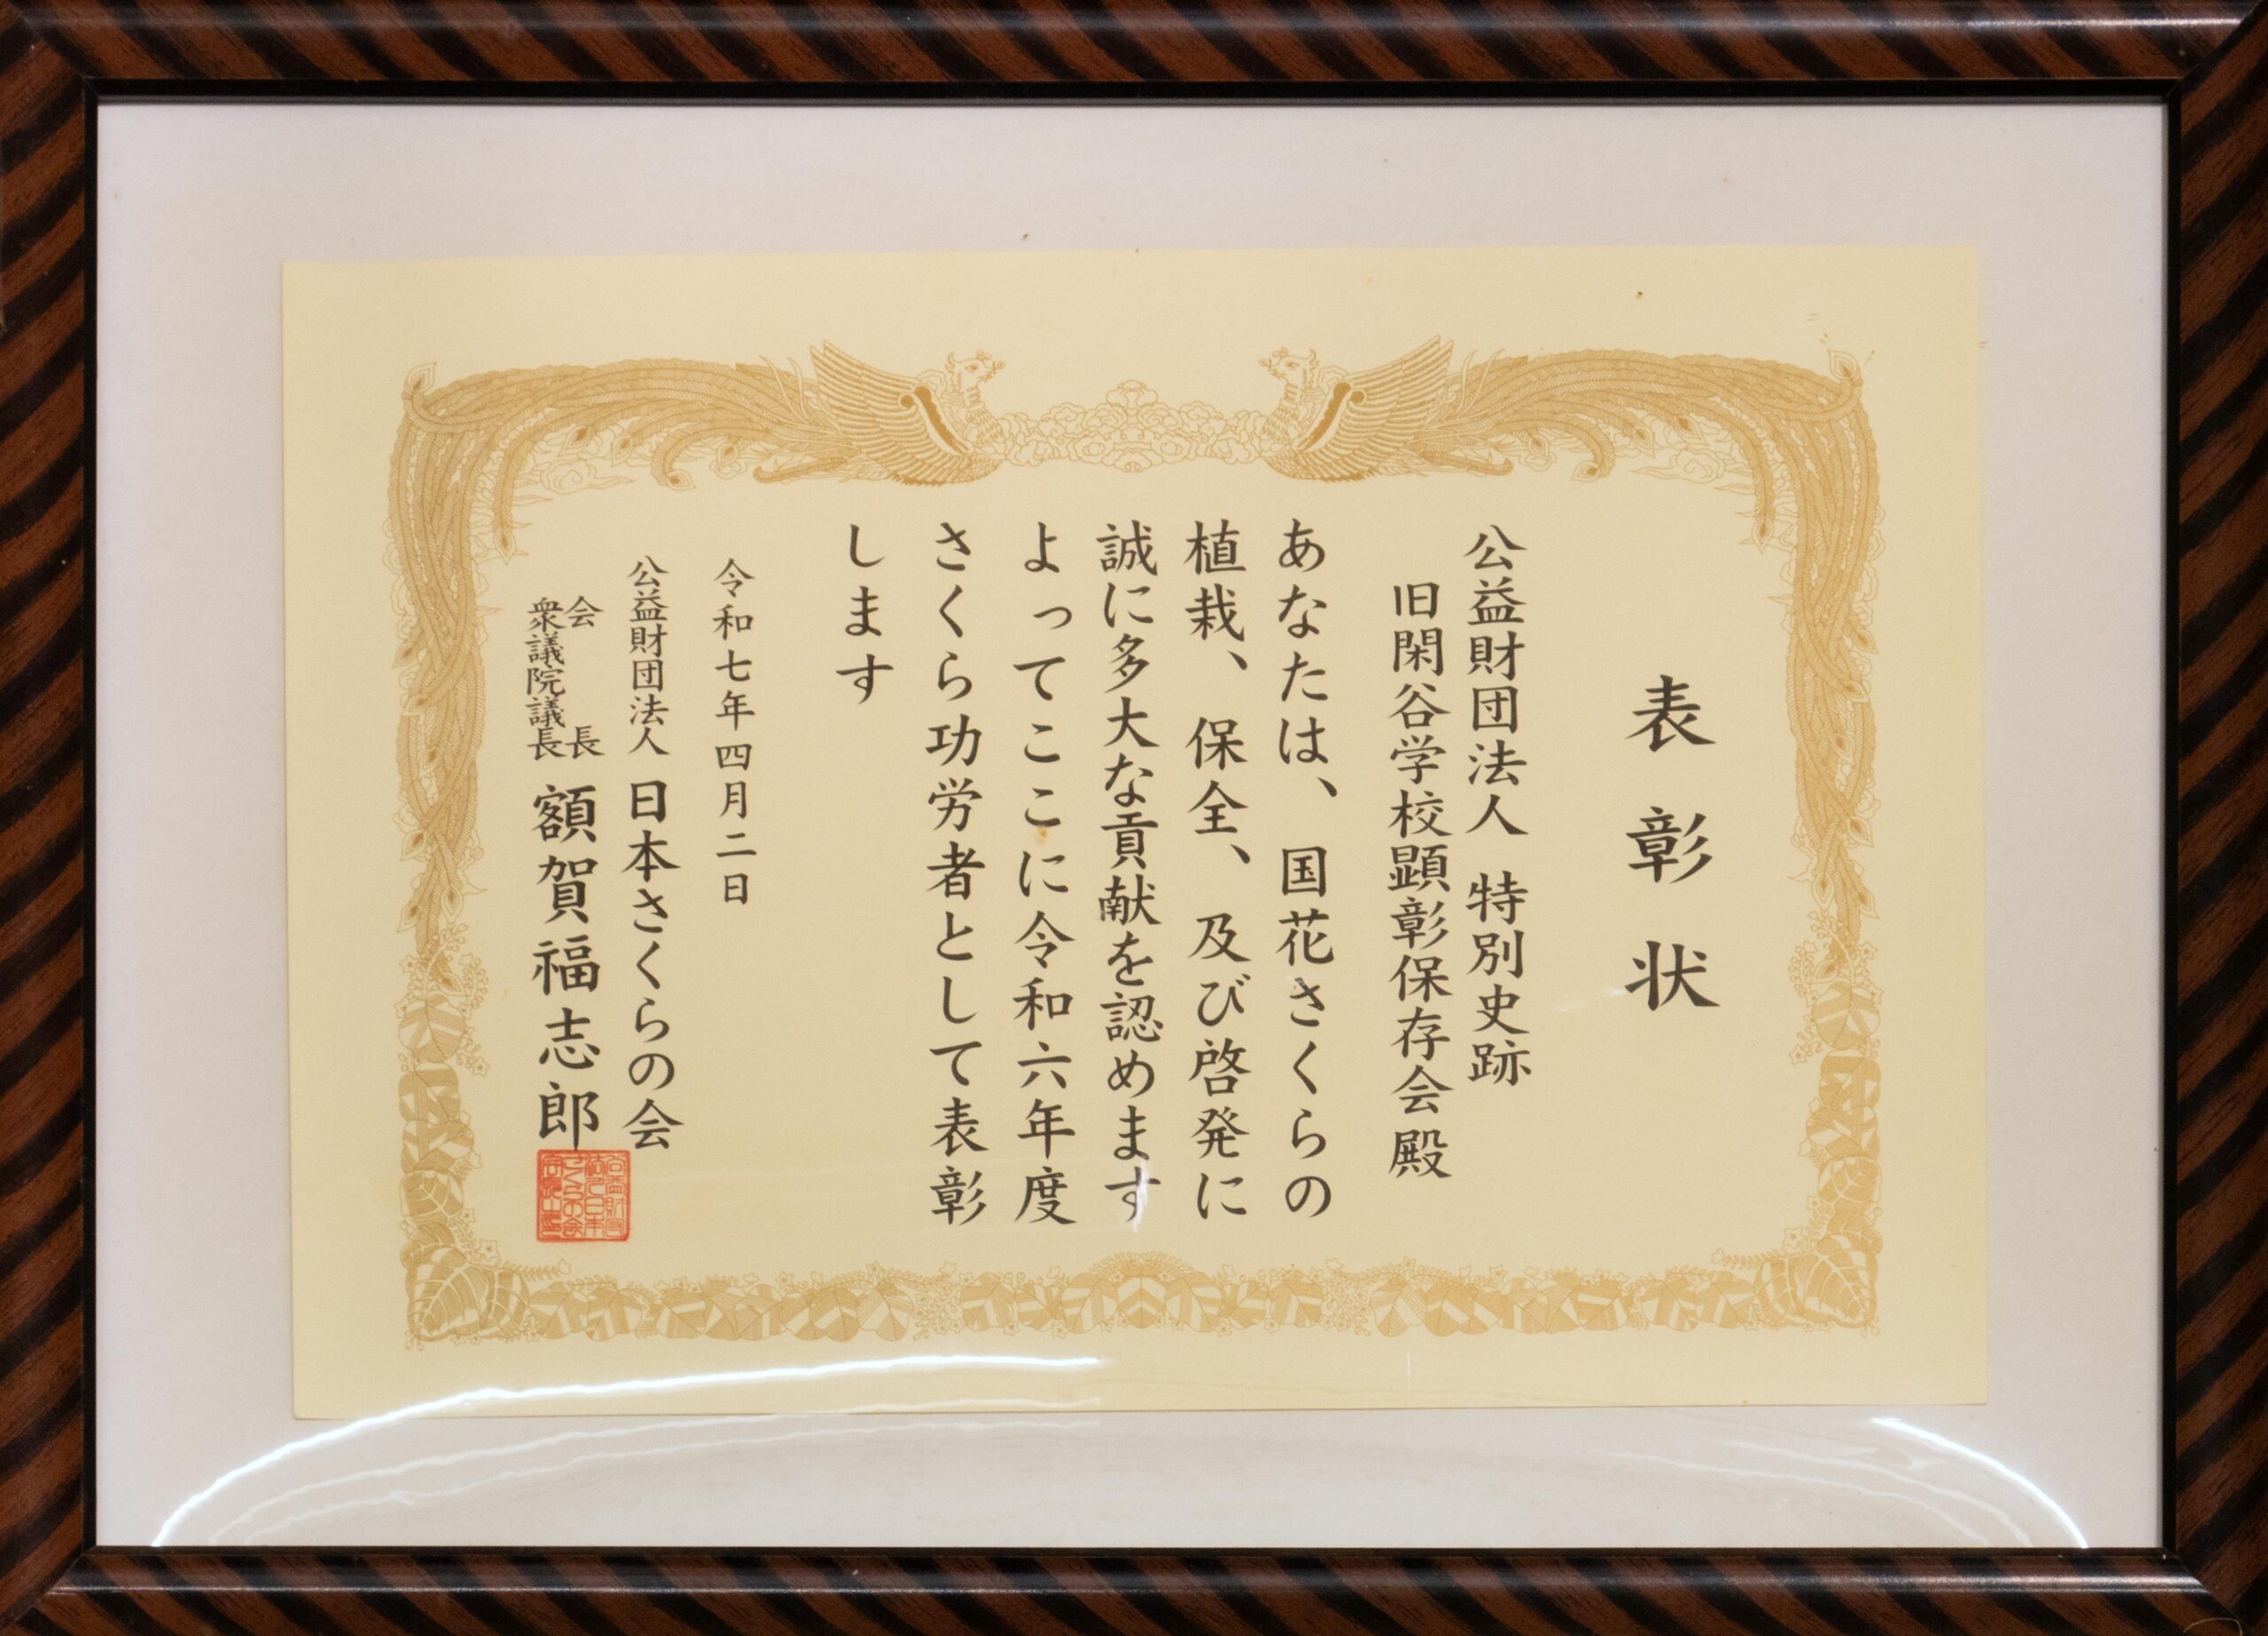 表彰状
公益財団法人 特別史跡
旧閑谷学校顕彰保存会殿
あなたは、国花さくらの
植栽、保全、及び啓発に
誠に多大な貢献を認めます
よってここに令和六年度
さくら功労者として表彰
します
令和七年四月二日
公益財団法人 日本さくらの会
会長
衆議院議長
額賀福志郎